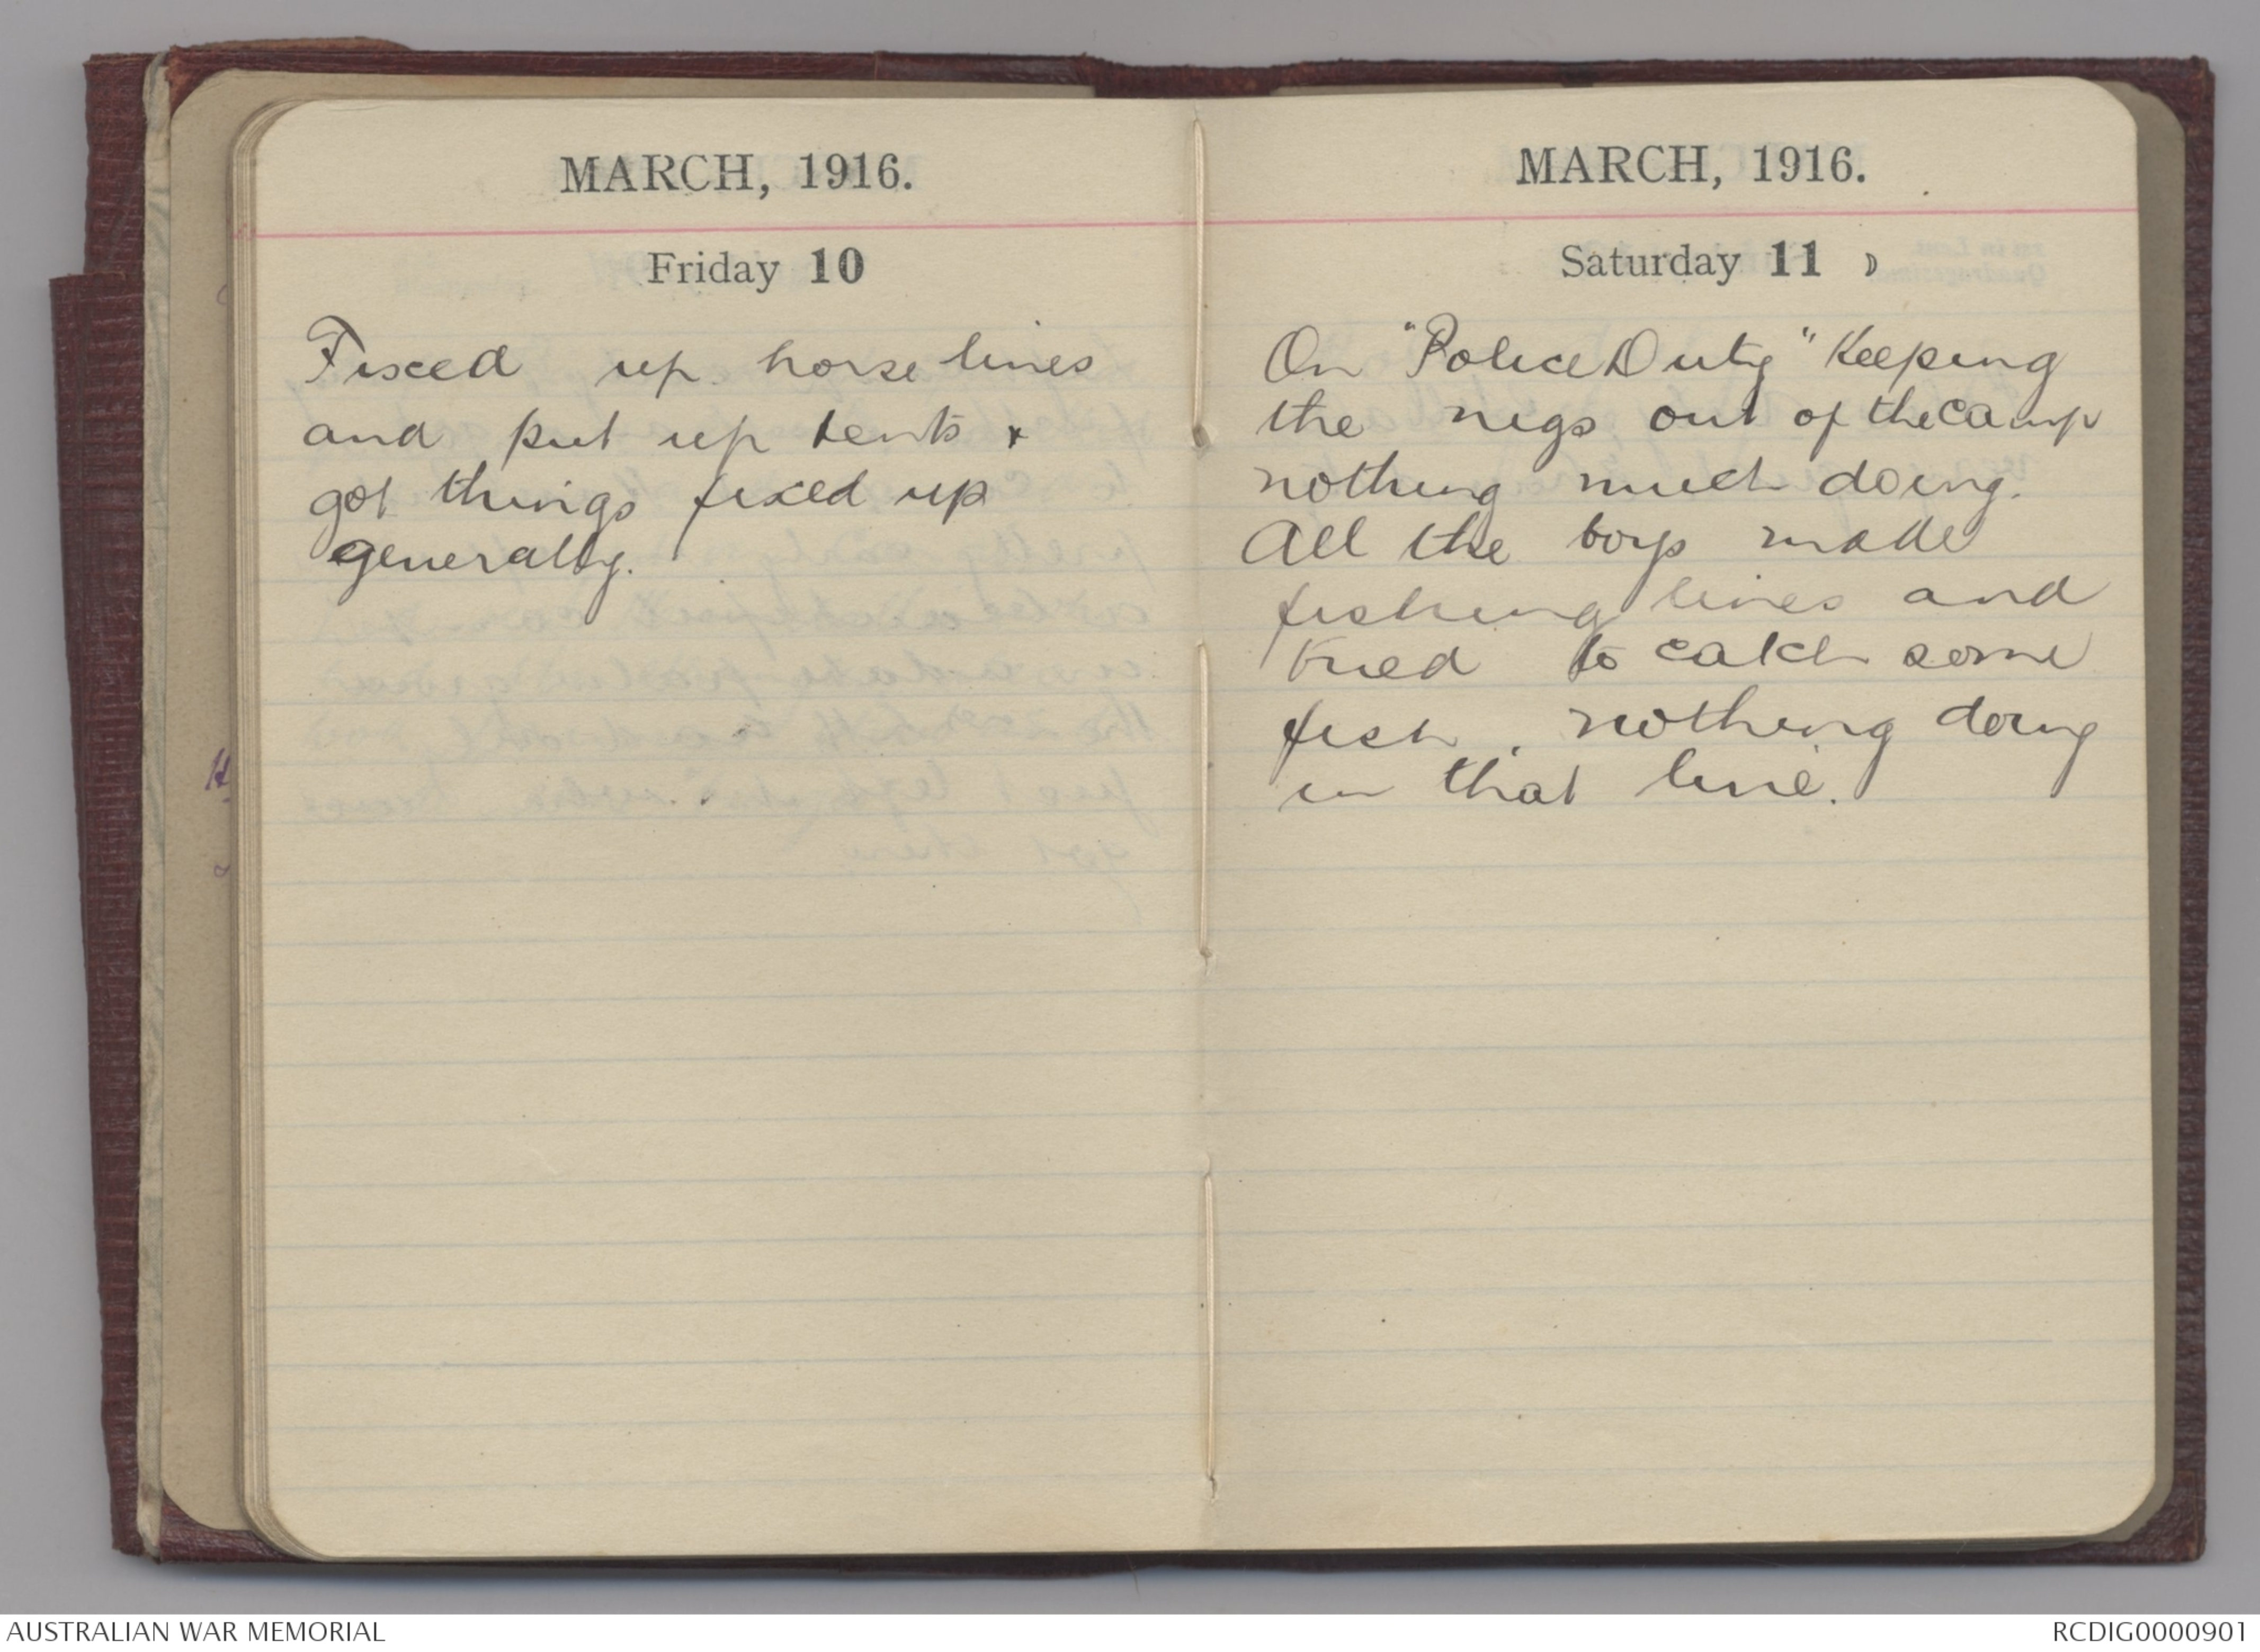 MARCH, 1916.
Friday 10
Fixed up horse lines
and put up tents &
got things fixed up
generally.
MARCH, 1916.
Saturday 11
On "Police Duty" Keeping
the nigs out of the camp
nothing much doing.
All the boys made
fishing lines and
tried to catch some
fish, nothing doing
in that line.
AUSTRALIAN WAR MEMORIAL
RCDIG0000901